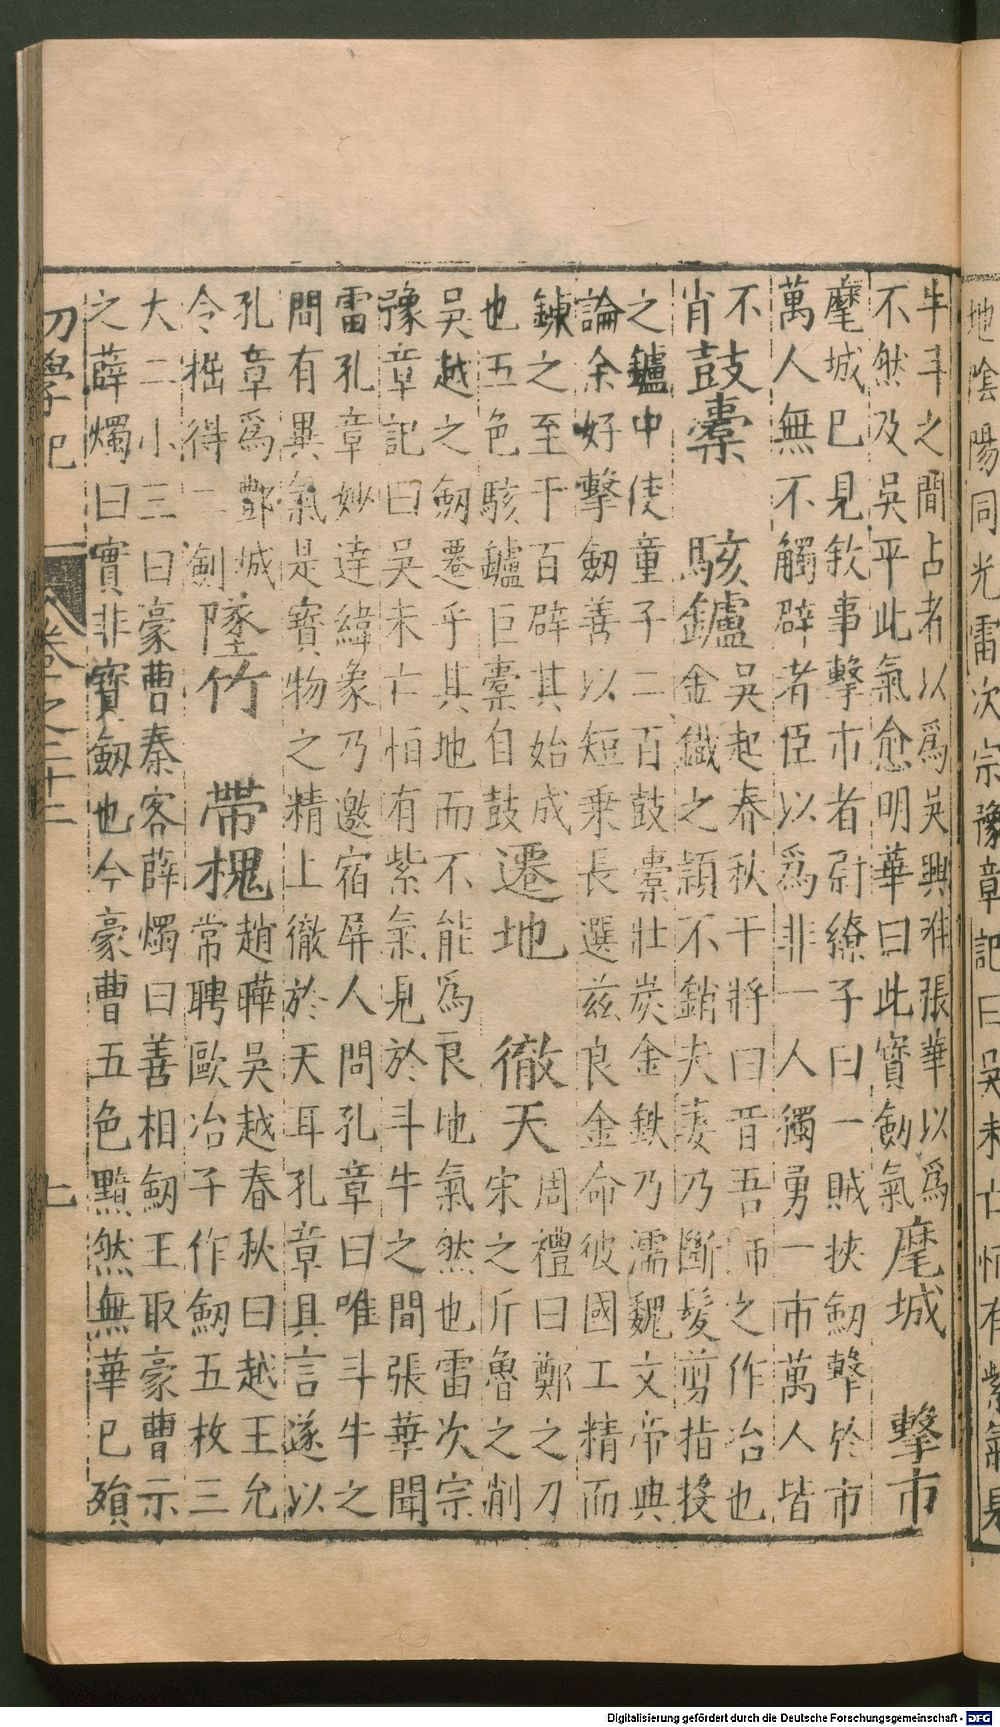 地陰陽同光雷次宗豫章記曰吳未亡恒有紫氣見
牛斗之間占者以爲吳興唯張華以爲
不然及吳平此氣愈明華曰此寶劒氣
麾城 擊市
麾城已見敘事擊市者尉繚子曰一賊挾劒擊於市
萬人無不觸辟者臣以爲非一人獨勇一市萬人皆
不
肖
鼓橐 駭鑪
吳起春秋干將曰昔吾師之作冶也
金鐵之頴不銷夫妻乃斷髮剪指投
之鑪中使童子二百鼓橐壯炭金鉄乃濡魏文帝典
論余好擊劒善以短乗長選兹良金命彼國工精而
鍊之至于百辟其始成
也五色駭鑪巨橐自鼓
遷地 徹天
周禮曰鄭之刀
宋之斤魯之削
吳越之劒遷乎其地而不能爲良地氣然也雷次宗
豫章記曰吳未亡恒有紫氣見於斗牛之間張華聞
雷孔章妙達緯象乃邀宿屏人問孔章曰唯斗牛之
間有異氣是寶物之精上徹於天耳孔章具言遂以
孔章爲酆城
令掘得二劍
墜竹 帶槐
趙曄吳越春秋曰越王允
常聘歐冶子作劒五枚三
大二小三曰豪曹秦客薛燭曰善相劒王取豪曹示
之薛燭曰實非寶劒也今豪曹五色黯然無華已殞
初學記 卷之二十二 七
Digitalisierung gefördert durch die Deutsche Forschungsgemeinschaft - DFG